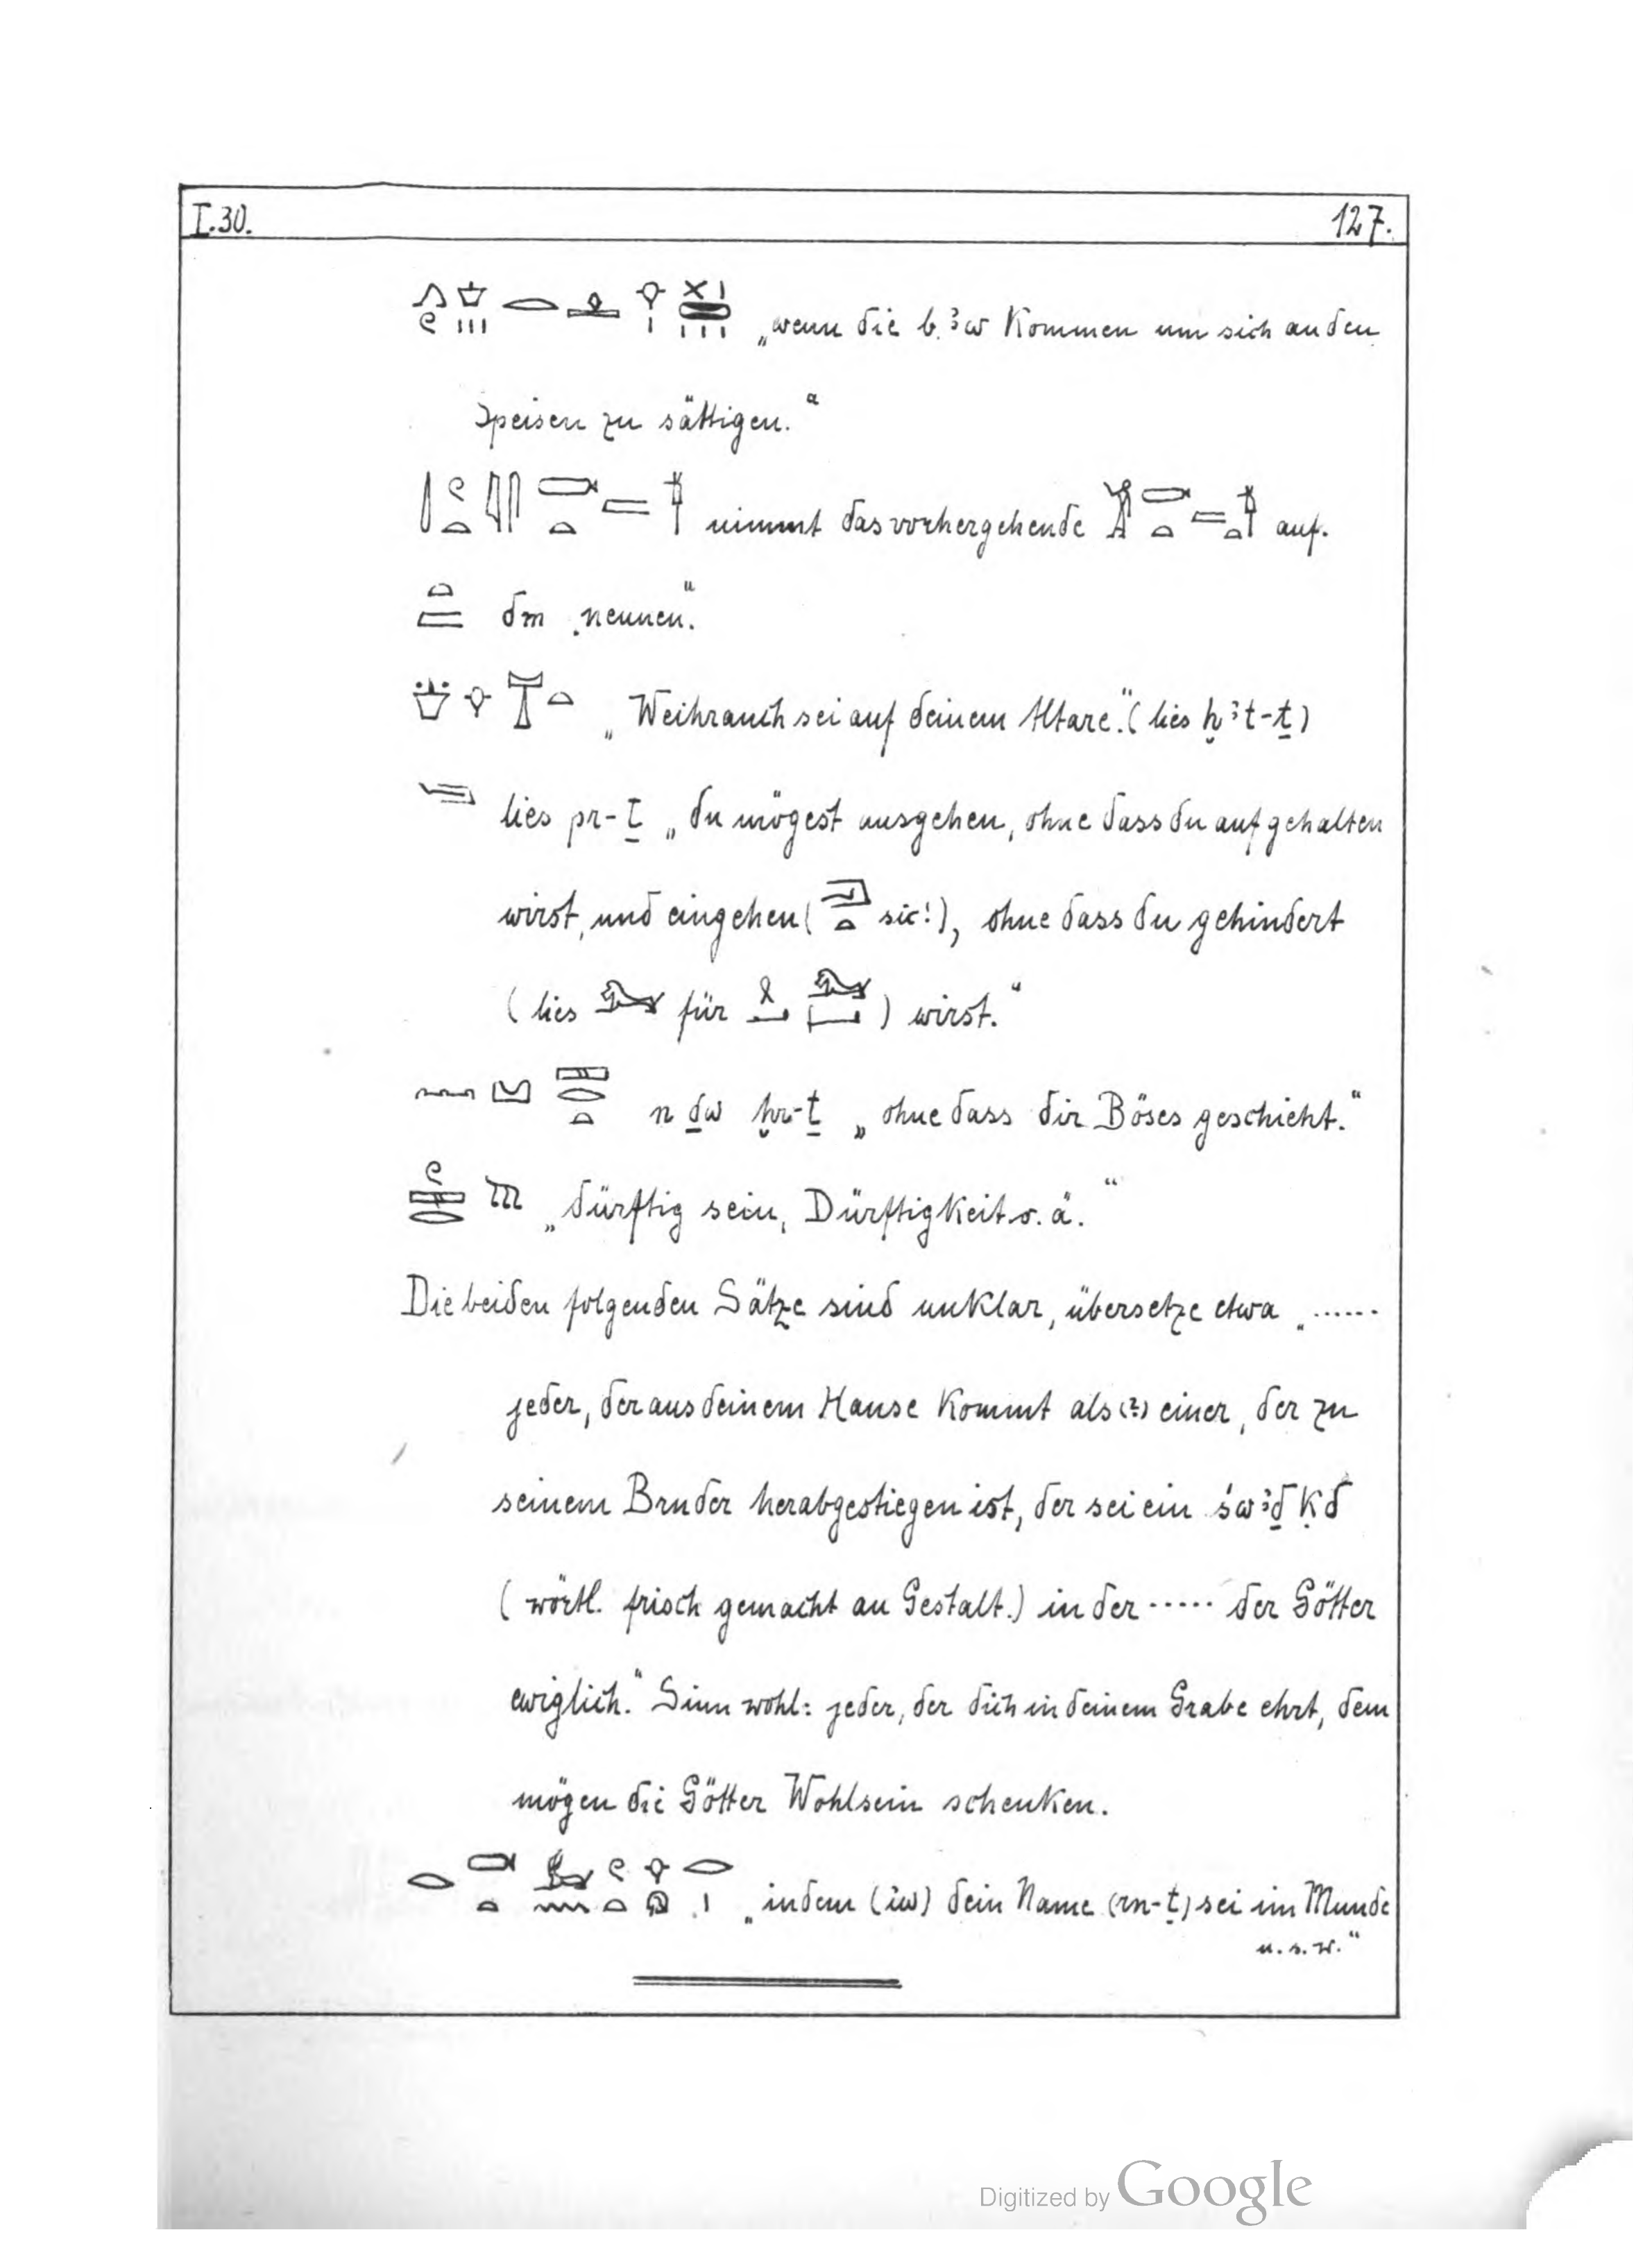 I.30. 127.
„wenn die b.ꜣw kommen um sich an den
Speisen zu sättigen.“
nimmt das vorhergehende auf.
dm „nennen“.
„Weihrauch sei auf deinem Altare.“ (lies ḫꜣt-ṯ)
lies pr-ṯ „du mögest ausgehen, ohne dass du aufgehalten
wirst, und eingehen ( sic!), ohne dass du gehindert
(lies für ) wirst.“
n ḏw ḫr-ṯ „ohne dass dir Böses geschieht.“
„dürftig sein, Dürftigkeit o. ä.“
Die beiden folgenden Sätze sind unklar, übersetze etwa „......
jeder, der aus deinem Hause kommt als (?) einer, der zu
seinem Bruder herabgestiegen ist, der sei ein śwꜣḏ ḳd
(wörtl. frisch gemacht an Gestalt.) in der ..... der Götter
ewiglich.“ Sinn wohl: jeder, der dich in deinem Grabe ehrt, dem
mögen die Götter Wohlsein schenken.
„indem (iw) dein Name (rn-ṯ) sei im Munde
u. s. w.“
Digitized by Google